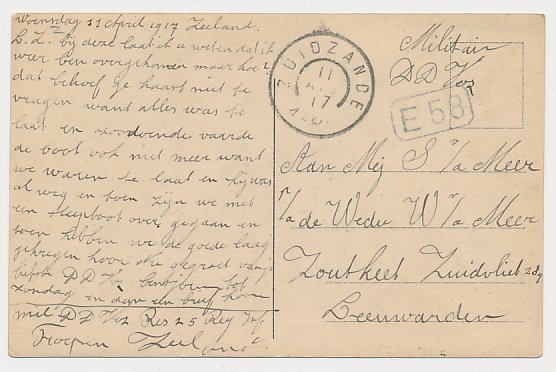 Woensdag 11 April 1917 Zeeland.
L. Z. bij deze laat ik u weten dat ik
weer ben overgekomen maar hoe
dat behoef ge haast niet te
vragen want alles was te
laat en
de boot ook niet meer want
we waren te laat en hij was
al weg en toen zijn we met
een sleepboot over gegaan en
toen hebben we de goede laag
gekregen hoor
liefste D D V tot
zondag en dan een brief hoor
mil D D V Res 25 Reg Inf.
Zeeland
ZUIDZANDE
11
17
Militair
D D V
E 58
Aan Mej S v/d Meer
p/a de Wedw W v/d Meer
Zoutkeet Zuidvliet
Leeuwarden